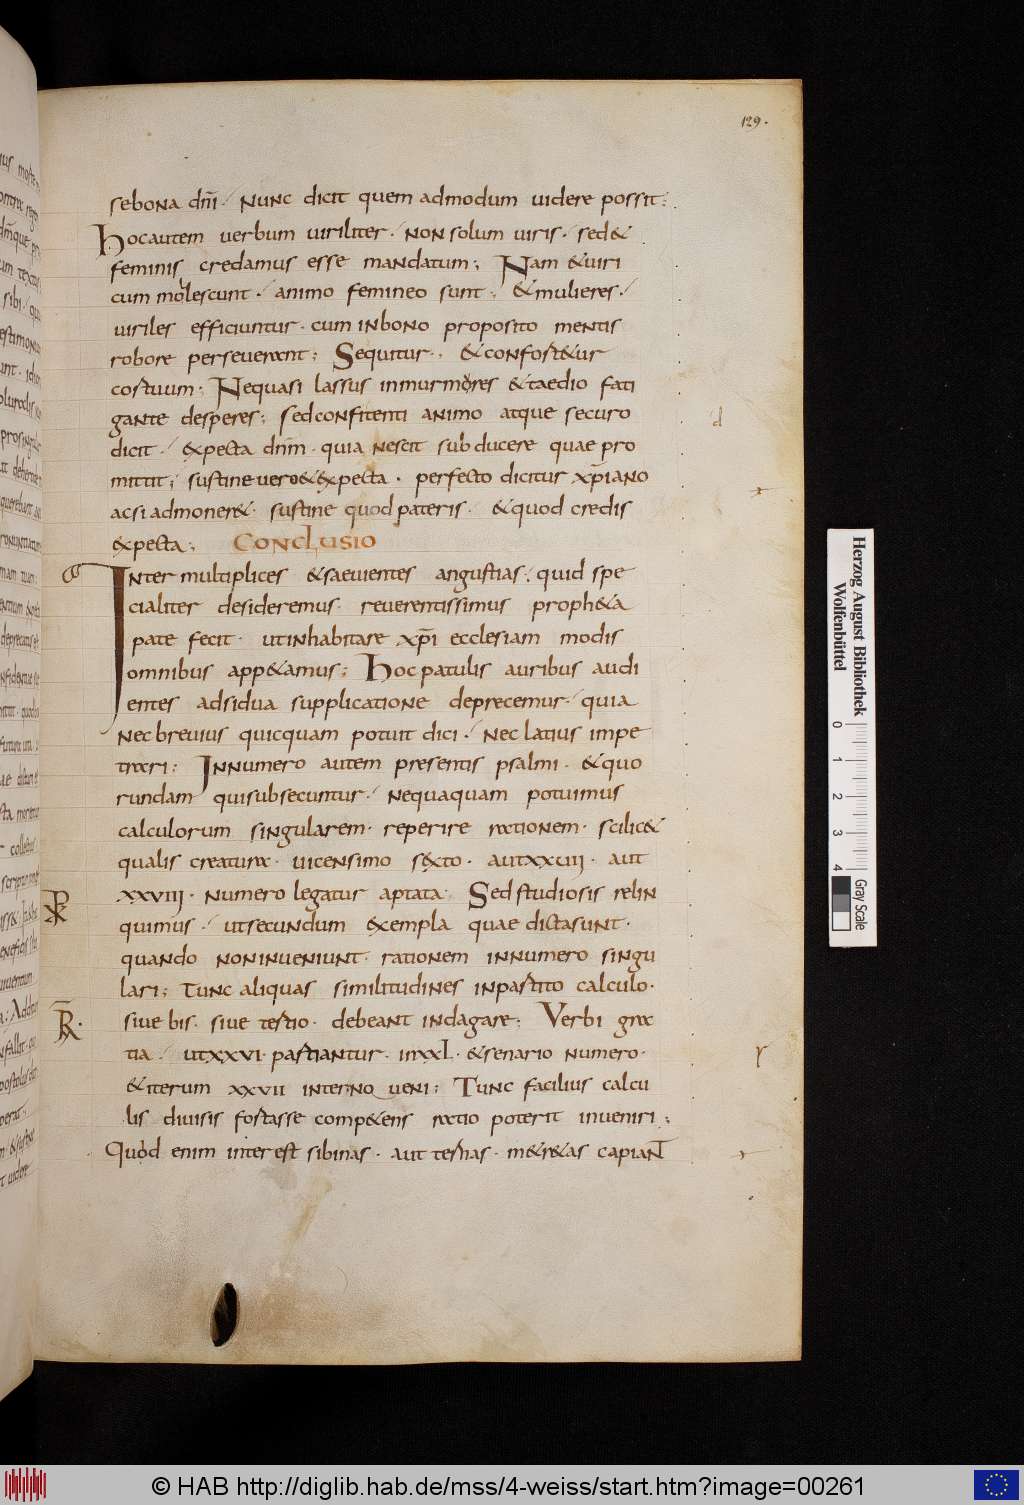 129.
sebona dn̄i· / Nunc dicit quem admodum uidere possit:
Hocautem uerbum uiriliter· / non solum uiris· sed&
feminis credamus esse mandatum; Nam &uiri
cum molescunt· / animo femineo sunt; &mulieres· /
uiriles efficiuntur· cum inbono proposito mentis
robore perseuerant; Sequitur·, &confort&ur
cor tuum; Nequasi lassus inmurmores &taedio fati
gante desperes; sedconfitenti animo atque securo
dicit· / expecta dnm̄· quia nescit subducere quae pro
mittit; sustine uero&expecta· perfecto dicitur xp̄iano
acsi admoner&· sustine quod pateris· &quod credis
expecta; CONCLUSIO
Inter multiplices &saeuientes angustias; quid spe
cialiter desideremus· reuerentissimus proph&a
pate fecit· utinhabitare xp̄i ecclesiam modis
omnibus app&amus; Hoc patulis auribus audi
entes adsidua supplicatione deprecemur· / quia
nec breuius quicquam potuit dici· / nec latius impe
trari: Innumero autem presentis psalmi· &quo
rundam quisubsecuntur· / nequaquam potuimus
calculorum singularem· reperire rationem· scilic&
qualis creaturae· uicensimo sexto· autxxuij· aut
xxviiij· numero legatur aptata· Sed studiosis relin
quimus· / utsecundum exempla quae dictasunt·
quando noninueniunt· rationem innumero singu
lari; tunc aliquas similitudines inpartito calculo·
siue bis· siue tertio· debeant indagare; Verbi gra
tia· utxxvi· partiantur· inxxL· &senario numero·
&iterum xxvii inter·no ueni; Tunc facilius calcu
lis diuisis fortasse comp&ens ratio poterit inueniri;
Quod enim interest sibinas· aut ternas· m&r&as capiaNT
Herzog August Bibliothek
Wolfenbüttel
0 1 2 3 4
Gray Scale
© HAB http://diglib.hab.de/mss/4-weiss/start.htm?image=00261